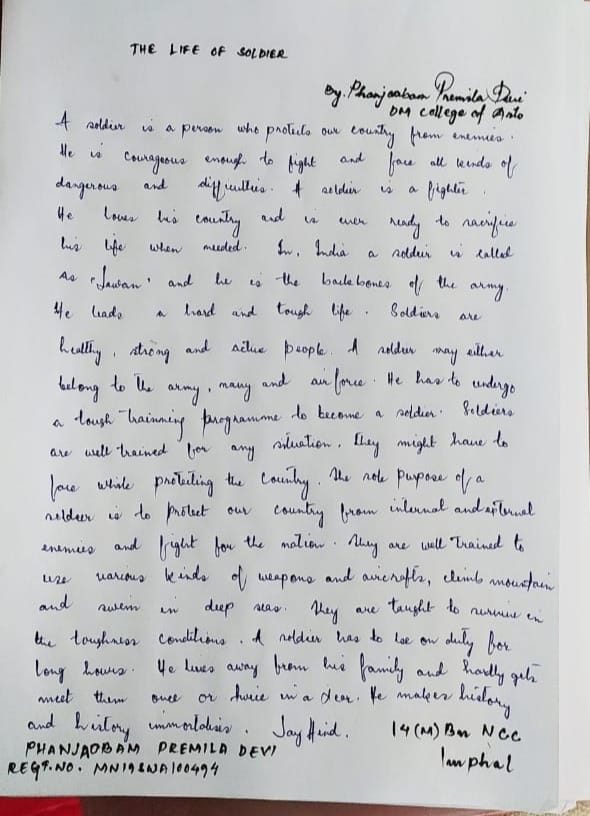 THE LIFE OF SOLDIER
By. Phanjaobam Premila Devi
DM College of Arts
A soldier is a person who protects our country from enemies.
He is courageous enough to fight and face all kinds of
dangerous and difficulties. A soldier is a fighter.
He loves his country and is ever ready to sacrifice
his life when needed. In, India a soldier is called
as "Jawan" and he is the backbones of the army.
He leads a hard and tough life. Soldiers are
healthy, strong and active people. A soldier may either
belong to the army, navy and air force. He has to undergo
a tough trainning programme to become a soldier. Soldiers
are well trained for any situation. They might have to
face while protecting the country. The sole purpose of a
soldier is to protect our country from internal and external
enemies and fight for the nation. They are well trained to
use various kinds of weapons and aircrafts, climb mountain
and swim in deep seas. They are taught to survive in
the toughness conditions. A soldier has to be on duty for
long hours. He lives away from his family and hardly gets
meet them once or twice in a year. He makes history
and history immortalises. Jay Hind.
14(M) Bn NCC
Imphal
PHANJAOBAM PREMILA DEVI
REGT. NO. MN19SWA100494